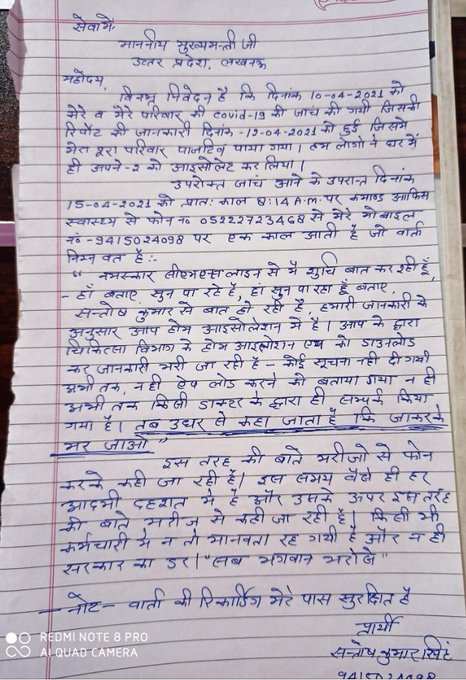 सेवा में
माननीय मुख्यमन्त्री जी
उत्तर प्रदेश, लखनऊ
महोदय,
विनम्र निवेदन है कि दिनांक 10-04-2021 को
मेरे व मेरे परिवार की covid-19 की जांच की गयी जिसकी
रिपोर्ट की जानकारी दिनांक -12-04-2021 को हुई जिसमे
मेरा पूरा परिवार पाजटिव पाया गया। हम लोगो ने घर में
ही अपने-2 को आइसोलेट कर लिया।
उपरोक्त जांच आने के उपरान्त दिनांक
15-04-2021 को प्रातः काल 8:14 A.m. पर कमाण्ड आफिस
स्वास्थ्य से फोन नं० 05222723468 से मेरे मोबाइल
नं० -9415024098 पर एक काल आती है जो वार्ता
निम्न वत है :-
" नमस्कार सीएमएस लाइन से मैं शुचि बात कर रही हूँ,
- हाँ बताए, सुन पा रहे है, हां सुन पा रहा हूँ बताए,
सन्तोष कुमार से बात हो रही है, हमारी जानकारी के
अनुसार आप होम आइसोलेशन में है। आप के द्वारा
चिकित्सा विभाग के होम आइसोलेशन एप को डाउनलोड
कर जानकारी भरी जा रही है - कोई सूचना नही दी गयी
अभी तक, नही ऐप लोड करने को बताया गया न ही
अभी तक किसी डाक्टर के द्वारा ही सम्पर्क किया
गया है। तब उधर से कहा जाता है कि जाकरके
मर जाओ "
इस तरह की बाते मरीजो से फोन
करके कही जा रही है। इस समय वैसे ही हर
आदमी दहशत में है और उसके ऊपर इस तरह
की बाते मरीज से कही जा रही है। किसी भी
कर्मचारी में न तो मानवता रह गयी है और न ही
सरकार का डर। "सब भगवान भरोसे"
- नोट - वार्ता की रिकार्डिंग मेरे पास सुरक्षित है
प्रार्थी
सन्तोष कुमार सिंह
9415024098
REDMI NOTE 8 PRO
AI QUAD CAMERA